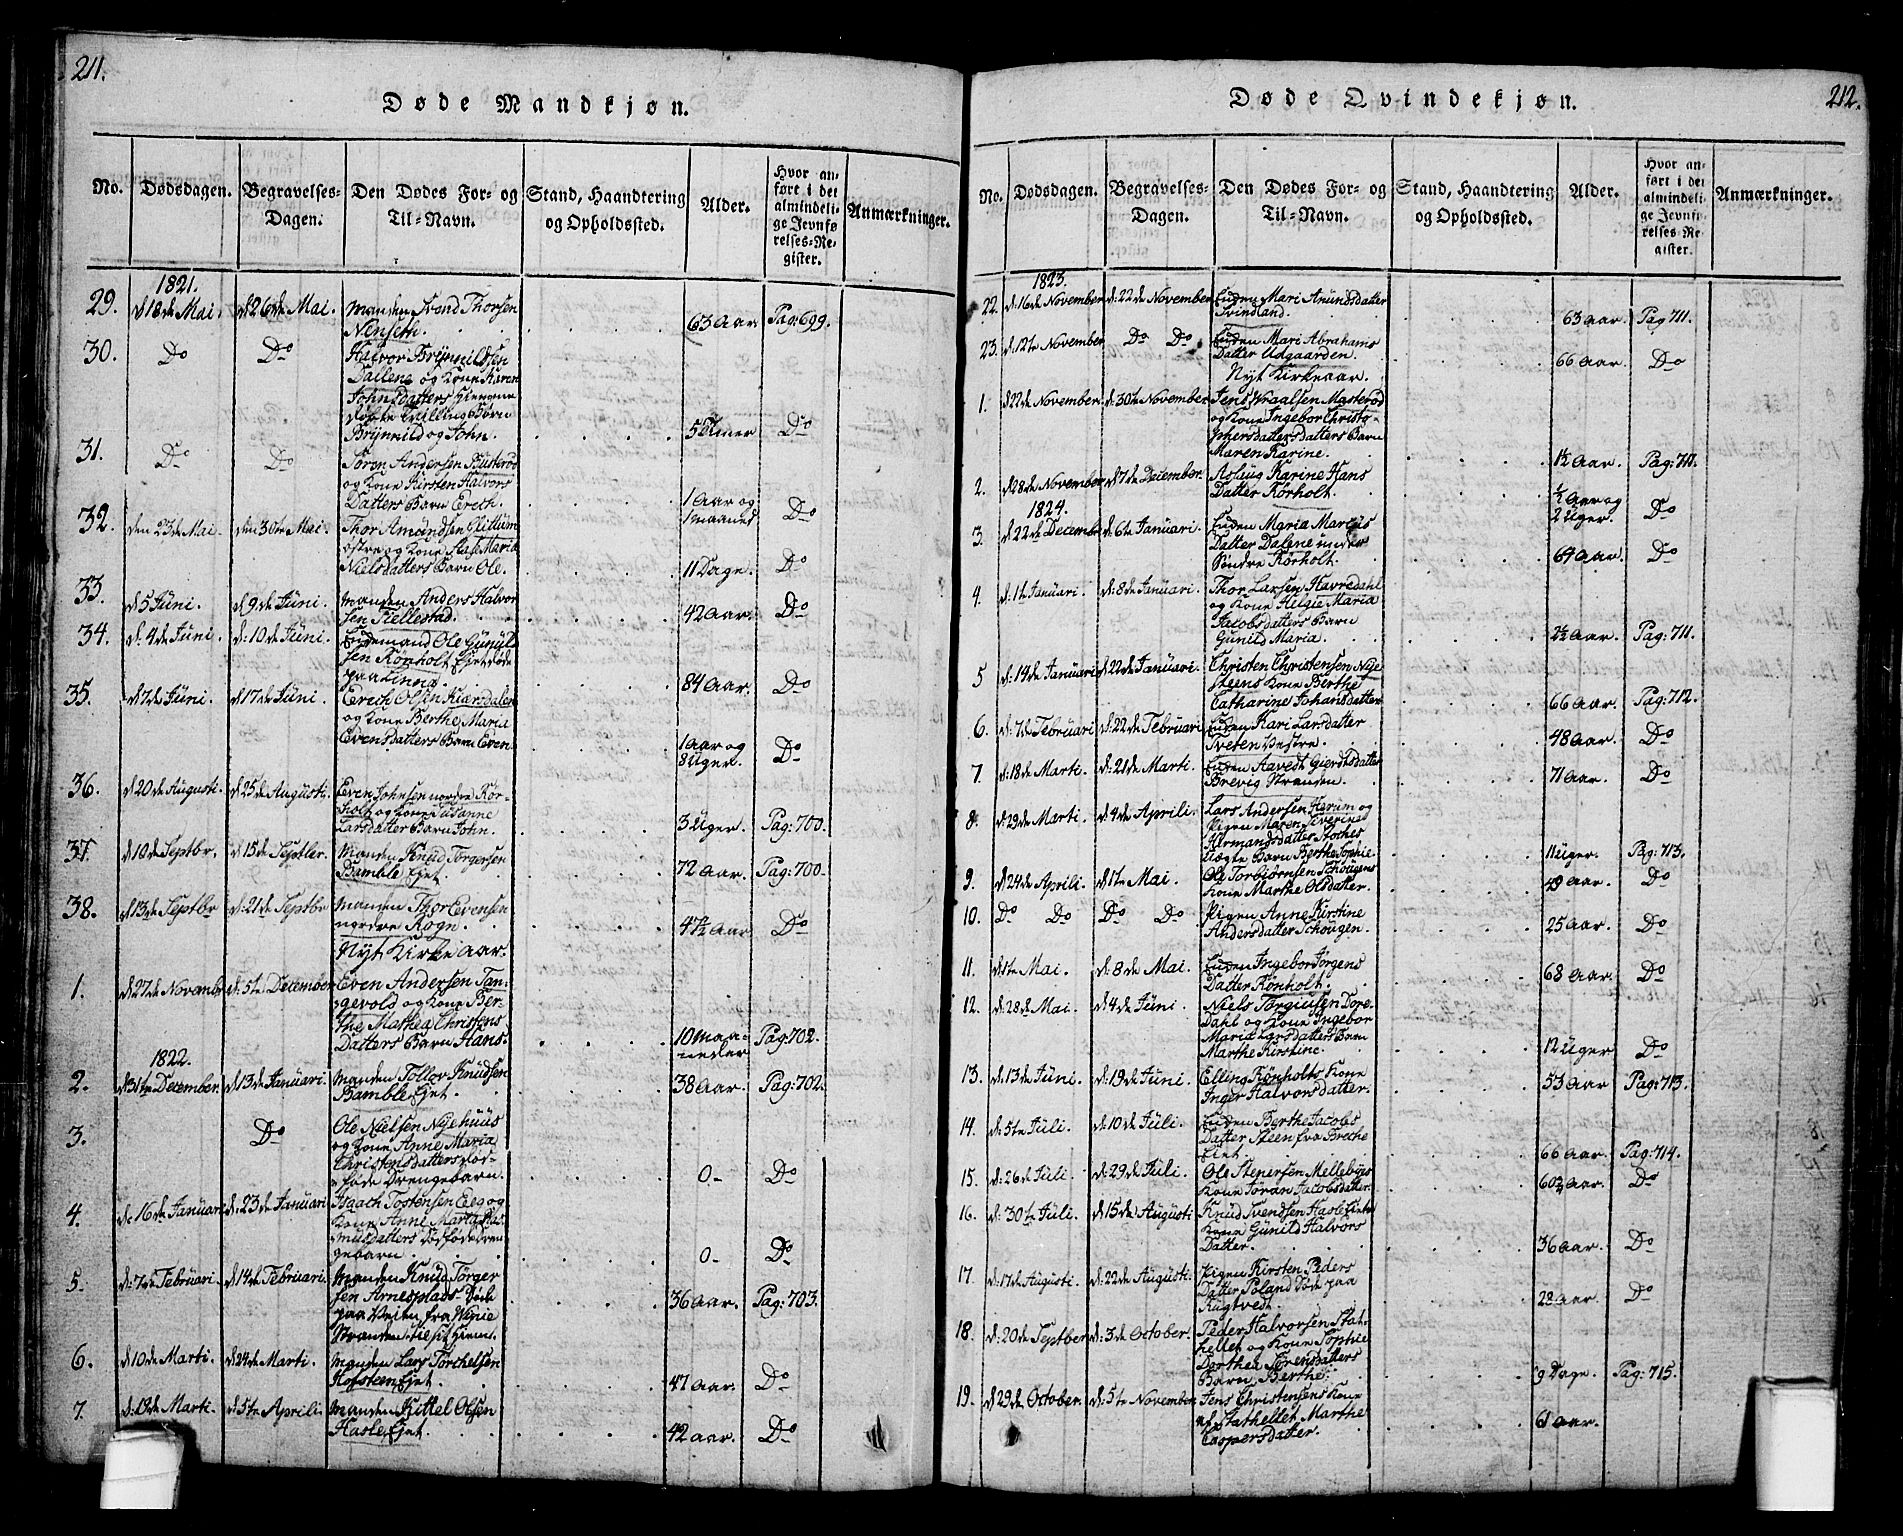 211.
Døde Mandkjøn.
No. Dødsdagen. Begravelses-Dagen. Den Dødes For- og Til-Navn. Stand, Haandtering og Opholdssted. Alder. Hvor anført i det almindelige Jevnførelses-Register. Anmærkninger.
1821.
29. d. 18de Mai. d. 26de Mai. Manden Svend Thorsen
Nenseth. 63 Aar. Pag: 699.
30. Do Do Halvor Brynnildsen
Dalene og Kone Karen
Johnsdatters hjemme
døbte Tvilling Børn
Brynnild og John. 5 Timer Do
31. Do Do Søren Andersen Busterød
og Kone Kirsten Halvors
Datters Barn Erech. 1 Aar og 1 maaned Do
32. den 23de Mai. den 30te Mai. Thor Amundsen
østre og Kone Maria
Nielsdatters Barn Ole. 11 Dage. Do
33. d. 5 Juni. d. 9de Juni. Manden Anders Halvor
sen Fiellestad. 42 Aar. Do
34. d: 4de Juni d: 10de Juni. Enkemand Ole
sen Kønholt Ejet døde
paa 84 Aar. Do
35. d. 7de Juni. d. 17de Juni Erech Olsen Kiærsdalen
og Kone Berthe Maria
Evensdatters Barn Even. 1 Aar og 8 Uger. Do
36. d. 20de Augusti. d. 25de Augusti Even Johnsen nordre Kør-
holt og Kone Susanne
Larsdatter Barn John. 3 Uger. Pag: 700.
37. d. 10de Septbr. d. 15de Septbr. Manden Knud Torgersen
Bamble Ejet. 72 Aar. Pag: 700.
38. d. 13de Septbr d: 21de Septbr Manden Thor Evensen
nordre Rogn. 47½ Aar Do
Nyt Kirke Aar.
1. d. 27de Novanb. d: 5te December Even Andersen Tan-
gevold og Kone Ber-
the Mathea Christens
Datters Barn Hans. 10 Maa-neder Pag: 702.
1822.
2. d. 31te December. d. 13de Januari. Manden Tollov Knudsen
Bamble Ejet. 38 Aar. Pag: 702.
3. Do Ole Nielsen Nyehuus
og Kone Anne Maria
Christensdatters død-
fødte Drengebarn. 0- Do
4. d: 16de Januari d: 23de Januari Isaach Tostensen Eeg og
Kone Anne Martha Ras
musdatters dødfødte Dren
gebarn. 0- Do
5. d: 7de Februari. d. 14de Februari. Manden Knud Torger
sen Arnesplads Døde
paa Veien fra
Stranden til sit Hiem. 36 Aar. Pag: 703.
6. d. 10de Marti. d. 24de Marti. Manden Lars Torchelsen
Hafsteen Ejet. 47 Aar. Do
7. d. 19de Marti. d. 5te Aprili. Manden Kittel Olsen
Hasle Ejet. 42 Aar. Do
212.
Døde Qvindekjøn.
No. Dødsdagen. Begravelses-Dagen. Den Dødes For- og Til-Navn. Stand, Haandtering og Opholdssted. Alder. Hvor anført i det almindelige Jevnførelses-Register. Anmærkninger.
1823.
22. d: 16de November. d: 22de November. Enken Mari Amundsdatter
Tvindland. 63 Aar. Pag 711.
23. d: 12te November Do Do Enken Mari Abrahams
Datter Udgaarden. 66 Aar. Do
Nyt Kirkeaar.
1. d. 22de November. d: 30te November. Jens Wraalsen Masterød
og Kone Ingebor Christo-
phersdattersdatters Barn
Maren Karine. 1½ Aar. Pag: 711.
2. d. 28de November d. 7de December. Aslaug Karine Hans
Datter Kørholt. ½ Aar og 2 Uger. Do
1824.
3. d. 22de December d. 6te Januari. Enken Maria Marcus
Datter Dalene under
Søndre Kørholt. 64 Aar. Do
4. d: 1te Januari d: 8de Januari. Thor Larsen Havredahl
og Kone Helgie Maria
Jacobsdatters Barn
Gunild Maria. 2½ Aar. Pag: 711.
5 d: 14de Januari d: 22de Januari. Christen Christensen Nye
steens Kone Berthe
Catharine Johansdatter 66 Aar. Pag: 712.
6. d: 7de Februari d: 22de Februari Enken Kari Larsdatter
Tveten Vestre. 48 Aar. Do
7. d: 18de Marti d: 21de Marti. Enken Aavedt Gierdtsdatter
Brevig Stranden. 71 Aar. Do
8. d: 29de Marti. d: 4de Aprili. Lars Andersen Herum og
Pigen Maren Severine
Hermandsdatter Stochs
Uægte Barn Berthe Sophie. 11 Uger. Pag: 713.
9. d. 24de Aprili d. 1te Mai. Ole Torbiørnsen Schougens
Kone Marthe Olsdatter. 49 Aar. Do
10. Do Do Do Do Pigen Anne Kirstine
Andersdatter Schougen. 25 Aar. Do
11. d. 1te Mai. d: 8de Mai. Enken Ingebor Jørgens
Datter Kønholt. 68 Aar. Do
12. d: 28de Mai. d: 4de Juni. Niels Torgiusen Dore-
Dahl og Kone Ingebor
Maria Larsdatters Barn
Marthe Kirstine. 12 Uger Do
13. d: 13de Juni. d: 19de Juni. Elling Kønholts Kone
Inger Halvorsdatter. 53 Aar Pag: 713.
14. d: 5te Juli. d: 10de Juli. Enken Berthe Jacobs
Datter Steen fra
Ejet. 66 Aar. Pag: 714.
15. d: 26de Juli. d: 29de Juli. Ole Stenersen Mellebyes
Kone Jøran Jacobsdatter. 60¾ Aar. Do
16. d: 30te Juli. d. 15de Augusti Knud Svendsen Hasle Ejets
Kone Gunild Halvors
Datter. 36 Aar. Do
17. d: 17de Augusti. d: 22de Augusti. Pigen Kirsten Peders
Datter Poland Døde paa
Rugtvedt. 22 Aar. Do
18. d: 20de Septber. d: 3de October. Peder Halvorsen Stat-
hellet og Kone Sophie
Dorthea Sørensdatters
Barn Berthe. 9 Dage. Pag: 715.
19. d. 29de October. d: 5te November. Jens Christensens Kone
af Stathellet Marthe
Caspersdatter. 61 Aar.